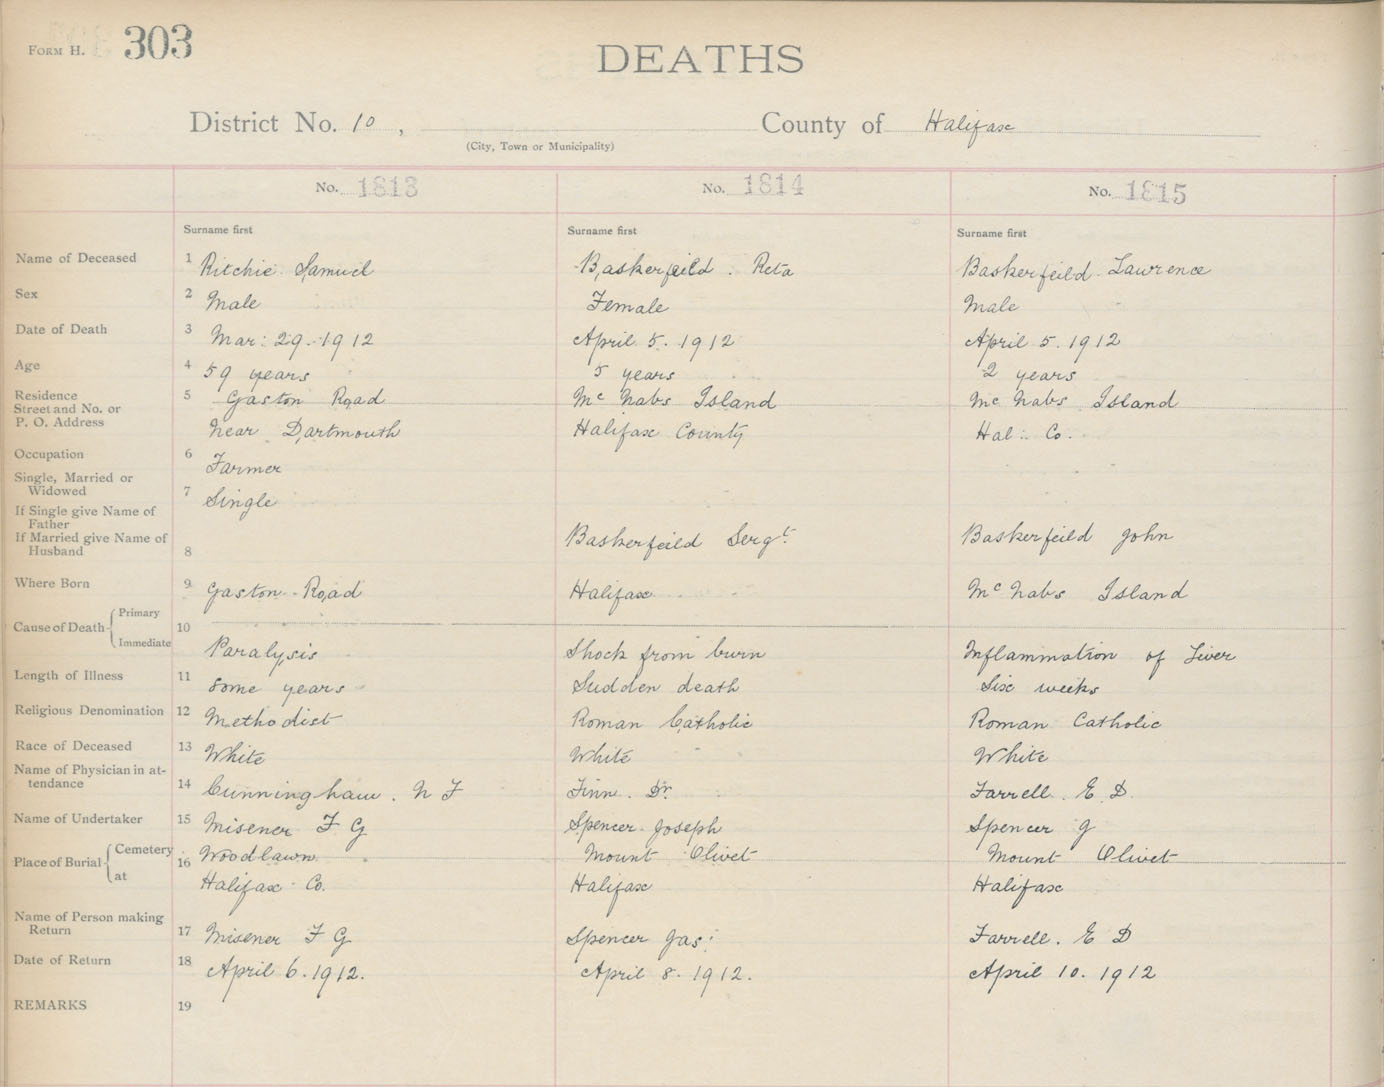 FORM H. 303
DEATHS
District No. 10 , County of Halifax
(City, Town or Municipality)
No. 1813 No. 1814 No. 1815
Surname first Surname first Surname first
Name of Deceased 1 Ritchie Samuel Baskerfeild . Reta Baskerfeild Lawrence
Sex 2 Male Female Male
Date of Death 3 Mar: 29. 1912 April 5. 1912 April 5. 1912
Age 4 59 years 5 years 2 years
Residence 5 Gaston Road Mc Nabs Island Mc Nabs Island
Street and No. or
P. O. Address Near Dartmouth Halifax County Hal: Co.
Occupation 6 Farmer
Single, Married or
Widowed 7 Single
If Single give Name of
Father
If Married give Name of Baskerfeild Sergt. Baskerfeild John
Husband 8
Where Born 9 Gaston Road Halifax Mc Nabs Island
Cause of Death Primary
10
Immediate Paralysis Shock from burn Inflammation of Liver
Length of Illness 11 Some years Sudden death Six weeks
Religious Denomination 12 Methodist Roman Catholic Roman Catholic
Race of Deceased 13 White White White
Name of Physician in at-
tendance 14 Cunningham . N F Finn . Dr. Farrell . E D.
Name of Undertaker 15 Misener F G Spencer Joseph Spencer J
Place of Burial Cemetery 16 Woodlawn Mount Olivet Mount Olivet
at Halifax Co. Halifax Halifax
Name of Person making
Return 17 Misener F G Spencer Jas: Farrell . E D
Date of Return 18 April 6. 1912. April 8. 1912. April 10. 1912
REMARKS 19